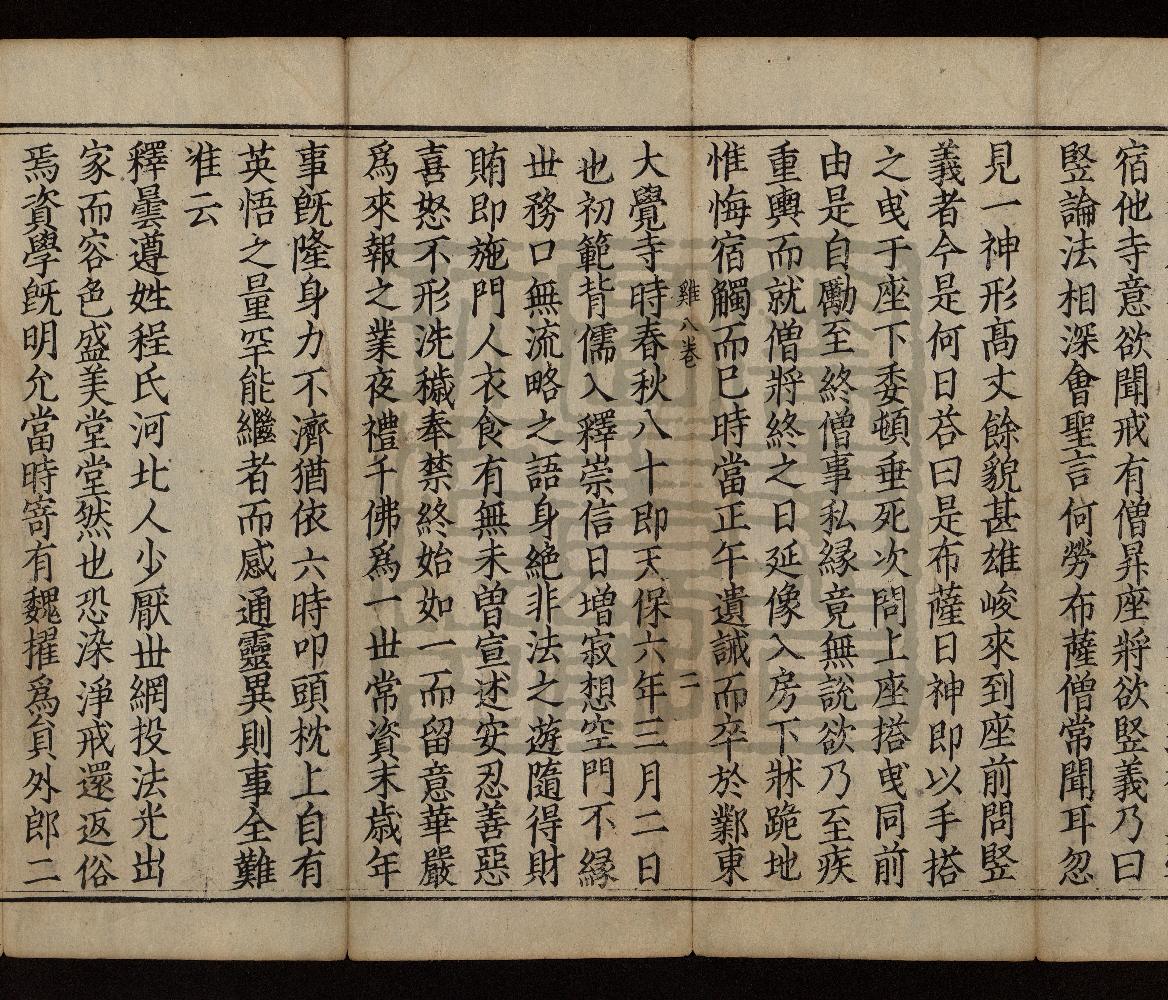 宿他寺意欲聞戒有僧昇座將欲竪義乃曰
竪論法相深會聖言何勞布薩僧常聞耳忽
見一神形高丈餘貌甚雄峻來到座前問竪
義者今是何日荅曰是布薩日神即以手搭
之曵于座下委頓垂死次問上座搭曵同前
由是自勵至終僧事私縁竟無說欲乃至疾
重輿而就僧將終之日延像入房下牀跪地
惟悔宿觸而已時當正午遺誡而卒於鄴東
雞八卷 二
大覺寺時春秋八十即天保六年三月二日
也初範背儒入釋崇信日增寂想空門不縁
丗務口無流略之語身絶非法之遊隨得財
賄即施門人衣食有無未曽宣述安忍善惡
喜怒不形洗穢奉禁終始如一而留意華嚴
爲來報之業夜禮千佛爲一丗常資末歲年
事旣隆身力不濟猶依六時叩頭枕上自有
英悟之量罕能繼者而感通靈異則事全難
准云
釋曇遵姓程氏河北人少厭丗網投法光出
家而容色盛美堂堂然也恐染淨戒還返俗
焉資學旣明允當時寄有魏擢爲負外郎二